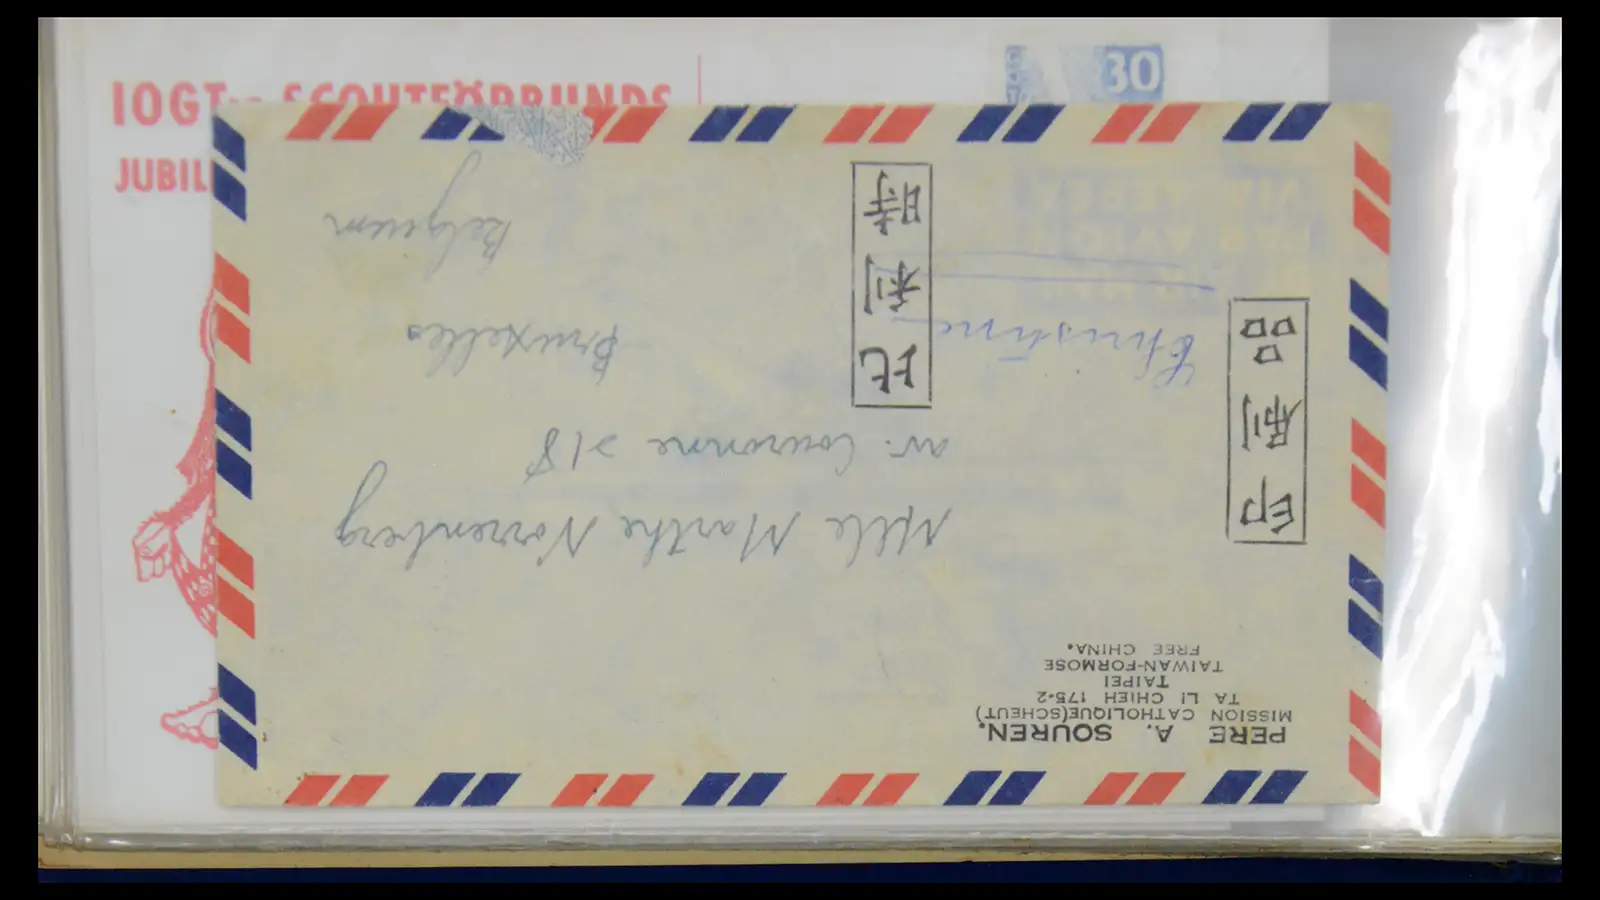 PERE A. SOUREN.
MISSION CATHOLIQUE(SCHEUT)
TA LI CHIEH 175-2
TAIPEI
TAIWAN-FORMOSE
FREE CHINA.
印刷品
比利時
Christine
Mlle Marthe Norrenberg
av. Couronne 218
Bruxelles
Belgium
IOGT SCOUTFÖRBUNDS
JUBIL
30